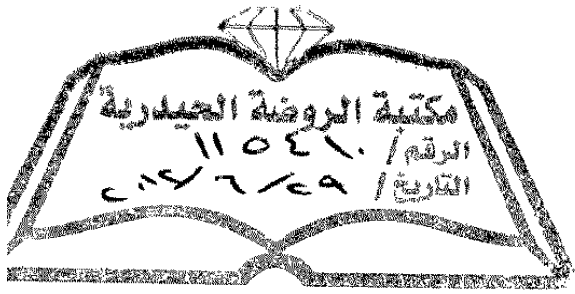 مكتبة الروضة الحيدرية
الرقم / ١١٥٤١٠
التاريخ /